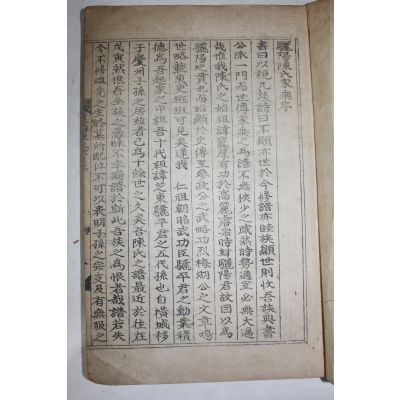 驪陽陳氏家乘序
書曰以親九族詩曰不顯亦世於今修譜亦睦族顯世則收吾族與書
公派一門而世傳家乘之爲譜不無挾少之感然時勢適宜必無大過
哉惟我陳氏之始祖諱寵厚有功於高麗睿宗時封驪陽君故因以爲
驪陽之貫也而始顯於史傳至參政公之武略功烈梅湖公之文章鳴
世略載東史班班可見矣逮我 仁祖朝昭武功臣驪平君之勳業積
德爲吾起家之中祖吾十代祖諱芝東驪平君之五代孫也自橫城移
于慶州子孫之居于者已爲十餘世之久矣吾陳氏之譜最近於往在
戊寅然惟吾坐族之愚昧不幸漏譜於斯此吾族之爲恨者哉譜若失
今不修祖先之生終墓所配位不可以表明子孫之宗支及有無服之